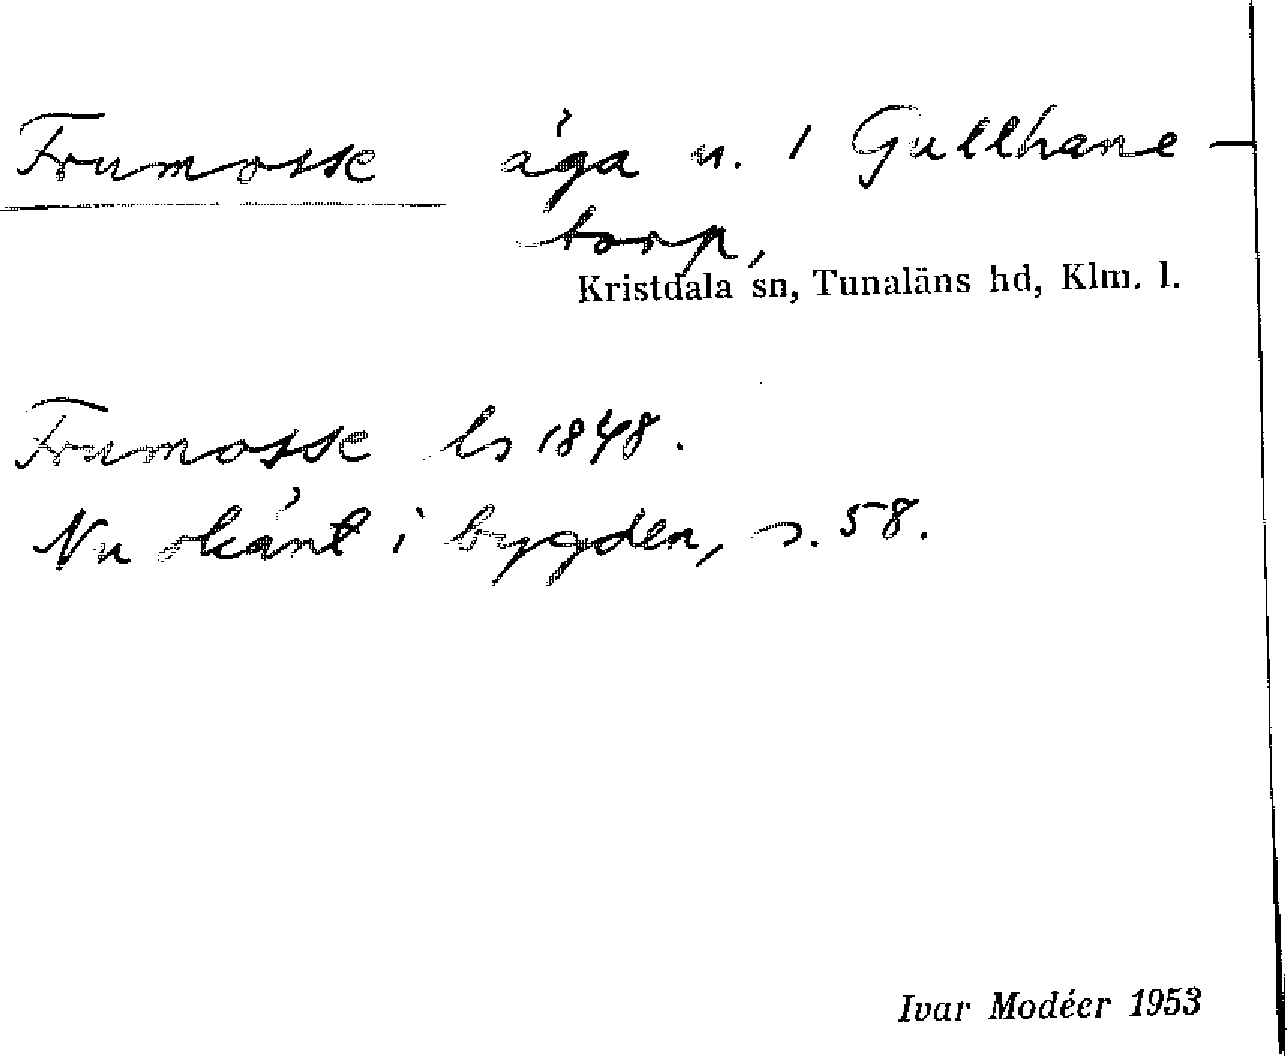 Frumosse äga n. 1 Gullhane-
torp,
Kristdala sn, Tunaläns hd, Klm. l.
Frumosse ls 1848.
Nu okänt i bygden, s. 58.
Ivar Modéer 1953